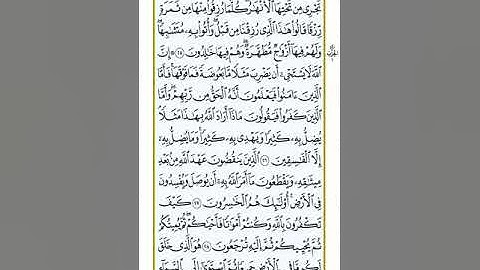 تَجْرِي مِن تَحْتِهَا ٱلْأَنْهَـٰرُ كُلَّمَا رُزِقُوا۟ مِنْهَا مِن ثَمَرَةٍ
رِّزْقًا قَالُوا۟ هَـٰذَا ٱلَّذِى رُزِقْنَا مِن قَبْلُ وَأُتُوا۟ بِهِۦ مُتَشَـٰبِهًا
وَلَهُمْ فِيهَآ أَزْوَٰجٌ مُّطَهَّرَةٌ وَهُمْ فِيهَا خَـٰلِدُونَ ٢٥ إِنَّ
ٱللَّهَ لَا يَسْتَحْىِۦٓ أَن يَضْرِبَ مَثَلًا مَّا بَعُوضَةً فَمَا فَوْقَهَا فَأَمَّا
ٱلَّذِينَ ءَامَنُوا۟ فَيَعْلَمُونَ أَنَّهُ ٱلْحَقُّ مِن رَّبِّهِمْ وَأَمَّا
ٱلَّذِينَ كَفَرُوا۟ فَيَقُولُونَ مَاذَآ أَرَادَ ٱللَّهُ بِهَـٰذَا مَثَلًا
يُضِلُّ بِهِۦ كَثِيرًا وَيَهْدِى بِهِۦ كَثِيرًا وَمَا يُضِلُّ بِهِۦٓ
إِلَّا ٱلْفَـٰسِقِينَ ٢٦ ٱلَّذِينَ يَنقُضُونَ عَهْدَ ٱللَّهِ مِنۢ بَعْدِ
مِيثَـٰقِهِۦ وَيَقْطَعُونَ مَآ أَمَرَ ٱللَّهُ بِهِۦٓ أَن يُوصَلَ وَيُفْسِدُونَ
فِى ٱلْأَرْضِ أُو۟لَـٰٓئِكَ هُمُ ٱلْخَـٰسِرُونَ ٢٧ كَيْفَ
تَكْفُرُونَ بِٱللَّهِ وَكُنتُمْ أَمْوَٰتًا فَأَحْيَـٰكُمْ ثُمَّ يُمِيتُكُمْ
ثُمَّ يُحْيِيكُمْ ثُمَّ إِلَيْهِ تُرْجَعُونَ ٢٨ هُوَ ٱلَّذِى خَلَقَ
لَكُم مَّا فِى ٱلْأَرْضِ جَمِيعًا ثُمَّ ٱسْتَوَىٰٓ إِلَى ٱلسَّمَآءِ